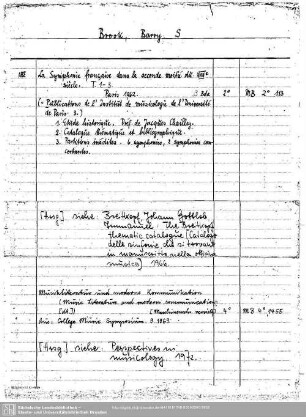 Brook, Barry, S
La Symphonie française dans la seconde moitié du XVIIIe
siècle. T. 1-3.
Paris 1962. 3 Bde 2° MB 2° 113
(= Publications de l'Institut de musicologie de l'Université
de Paris. 3.)
1. Etude historique. Préf. de Jacques Chailley.
2. Catalogue thématique et bibliographique.
3. Partitions inédites. 6 symphonies, 2 symphonies con-
certantes.
[Hrsg.] siehe: Breitkopf, Johann Gottlob
Immanuel: The Breitkopf
thematic catalogue [Catalogo
delle sinfonie che si trovano
in manuscritto nella officina
musica] 1966.
Musikliteratur und moderne Kommunikation
(Music literature and modern communication)
[dt.] (Maschinenschr. vervielf.) 4° MB 4° 9455
Aus: College Music Symposium. 9. 1969.
[Hrsg.] siehe: Perspectives in
musicology. 1972.